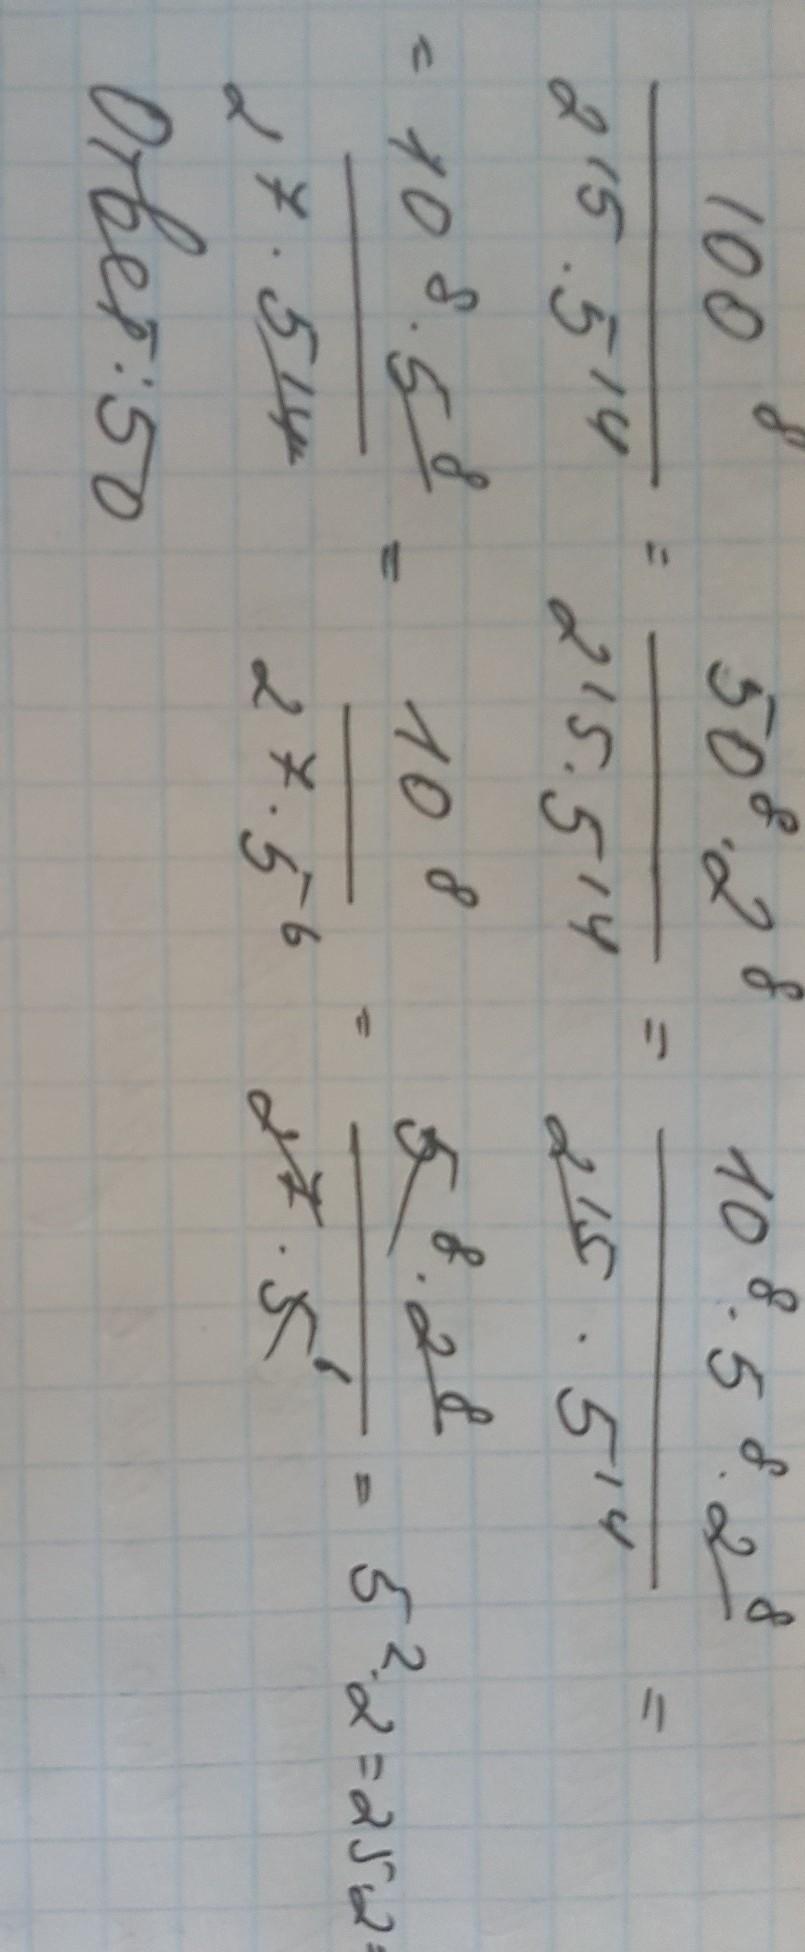 100⁸ / 2¹⁵·5¹⁴ = 50⁸·2⁸ / 2¹⁵·5¹⁴ = 10⁸·5⁸·2⁸ / 2¹⁵·5¹⁴ =
= 10⁸·5⁸ / 2⁷·5¹⁴ = 10⁸ / 2⁷·5⁶ = 5⁸·2⁸ / 2⁷·5⁶ = 5²·2=25·2=
Ответ: 50